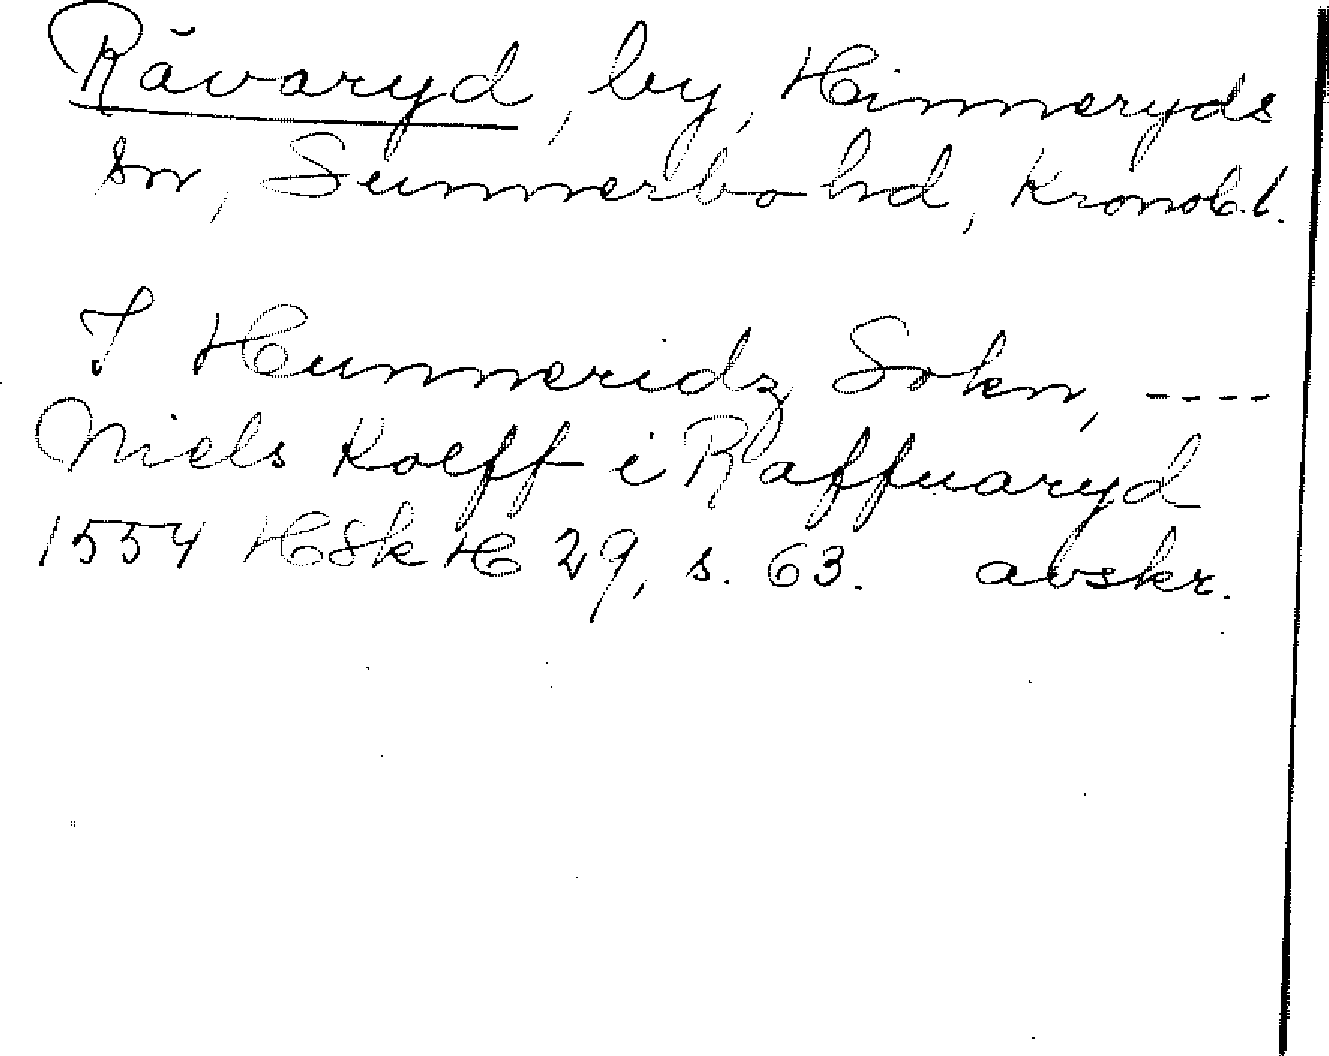 Råvaryd, by, Hinneryds
sn, Sunnerbo hd, Kronob.l.
I Hunneridz Sokn, ----
Niels Kolff i Raffuaryd
1554 HSkH 29, s. 63. avskr.